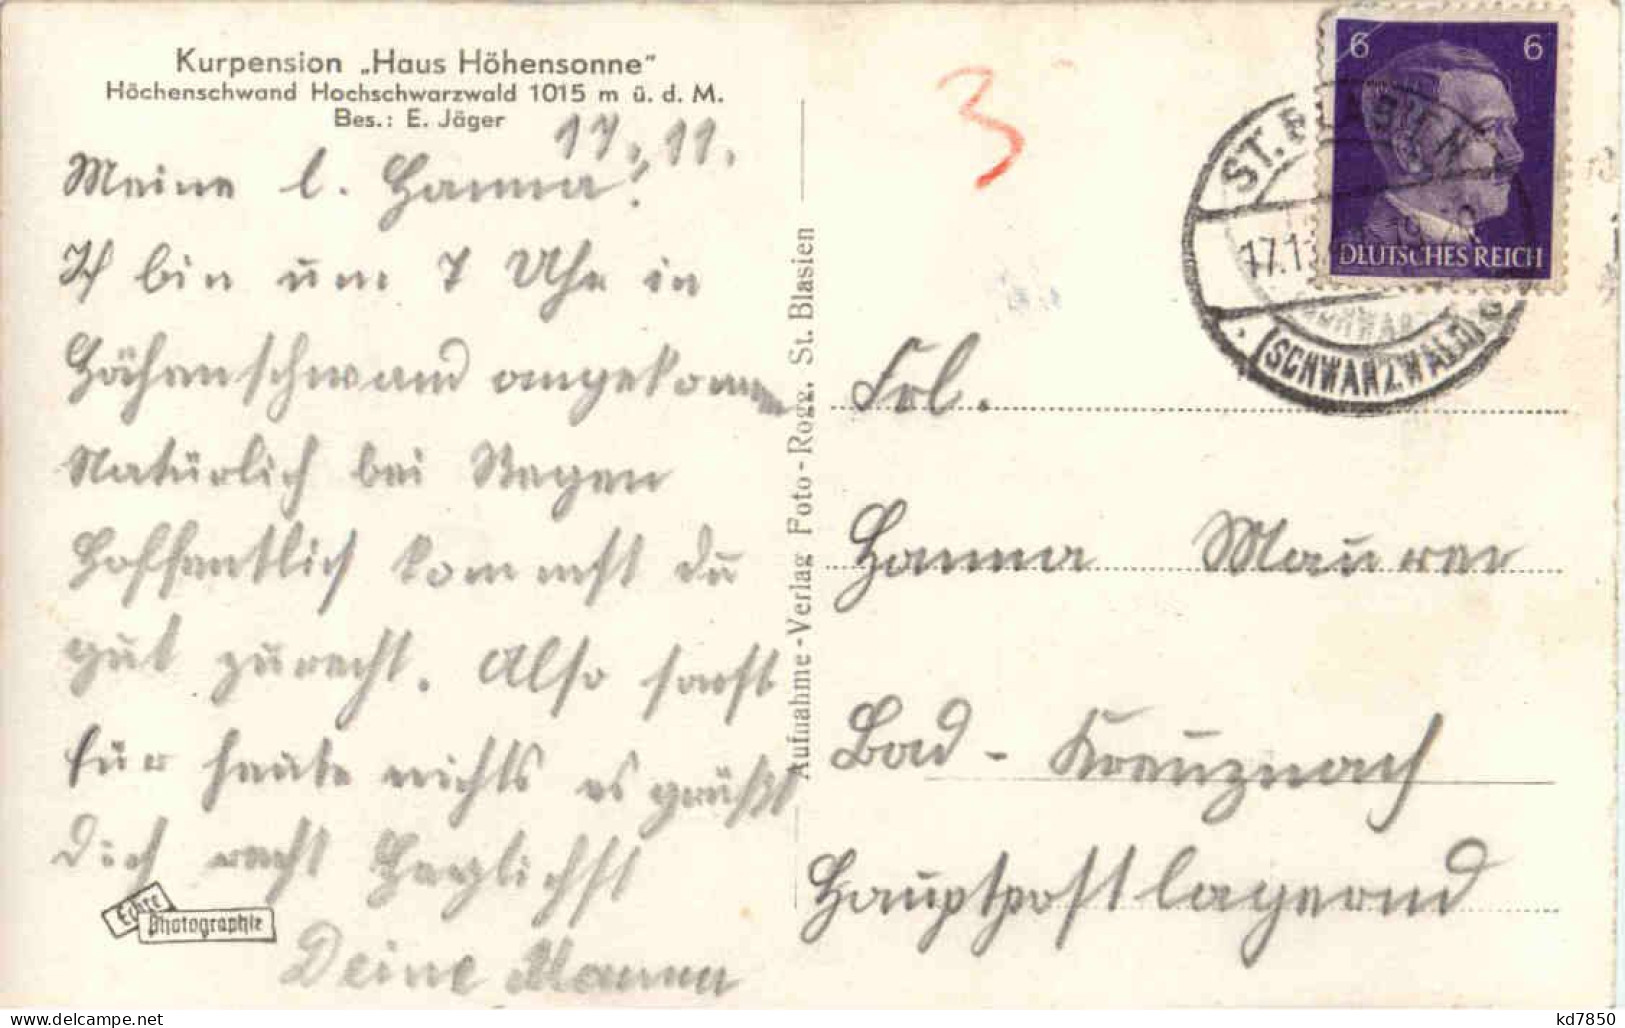 Kurpension „Haus Höhensonne"
Höchenschwand Hochschwarzwald 1015 m ü. d. M.
Bes.: E. Jäger
17. 11.
Meine l. Hanna!
Ich bin um 7 Uhr in
Höhenschwand angekomm
Natürlich bei Regen
Hoffentlich kommst du
gut zurecht. Also sonst
für heute nichts es grüßt
dich recht Herzlichst
Deine Mama
Echte
Photographie
Aufnahme-Verlag Foto-Rogg. St. Blasien
3
6 6
DEUTSCHES REICH
ST. BLASIEN
17.11
(SCHWARZWALD)
Frl.
Hanna Maurer
Bad - Kreuznach
Hauptpostlagernd
kd7850